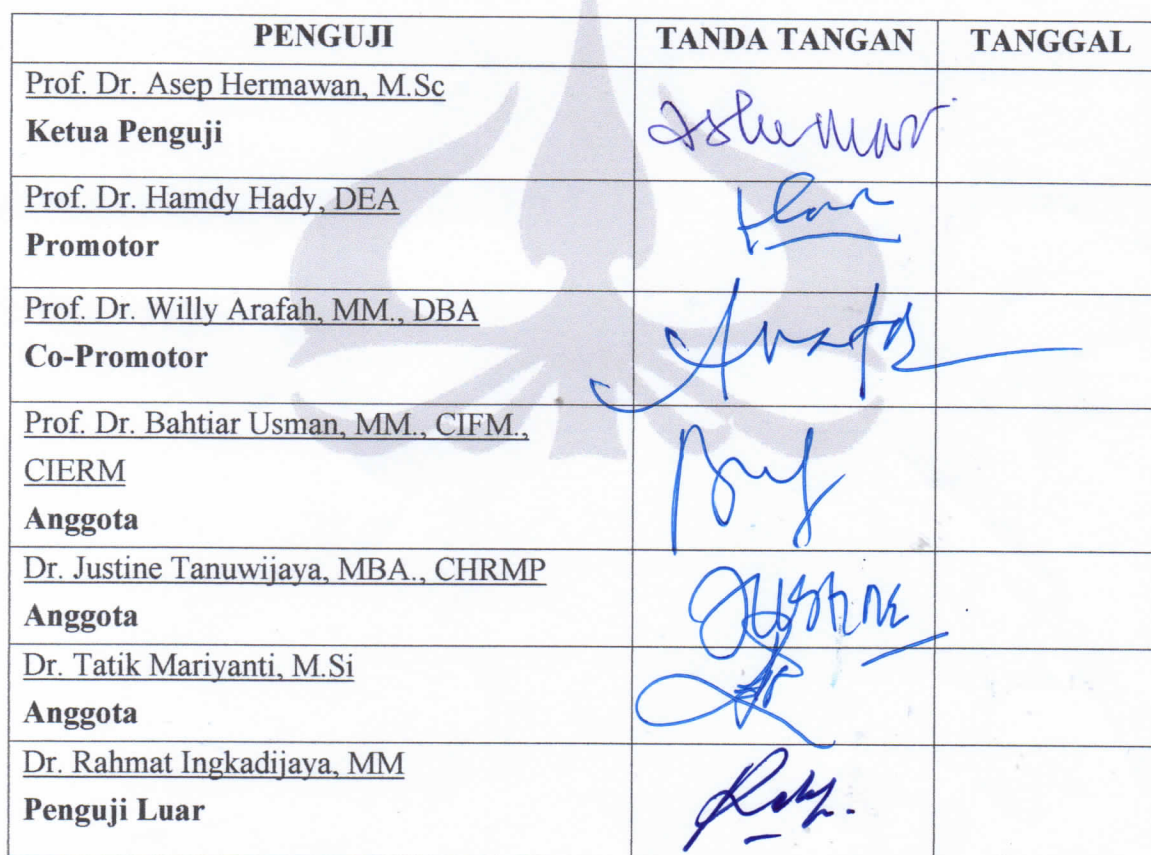 PENGUJI TANDA TANGAN TANGGAL
Prof. Dr. Asep Hermawan, M.Sc
Ketua Penguji
Prof. Dr. Hamdy Hady, DEA
Promotor
Prof. Dr. Willy Arafah, MM., DBA
Co-Promotor
Prof. Dr. Bahtiar Usman, MM., CIFM.,
CIERM
Anggota
Dr. Justine Tanuwijaya, MBA., CHRMP
Anggota
Justine
Dr. Tatik Mariyanti, M.Si
Anggota
Dr. Rahmat Ingkadijaya, MM
Penguji Luar